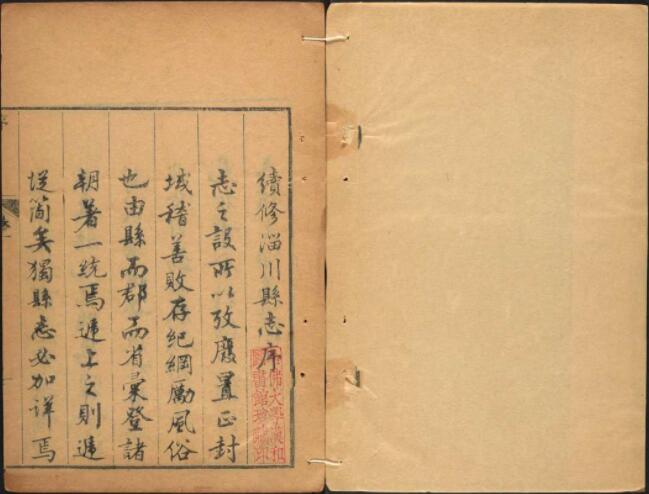 續修淄川縣志序
志之設所以攷廢置正封
域稽善敗存紀綱勵風俗
也由縣而郡而省彙登諸
朝著一統焉遞上之則遞
從簡矣獨縣志必加詳焉
哈佛大學漢和
圖書館珍藏印
序